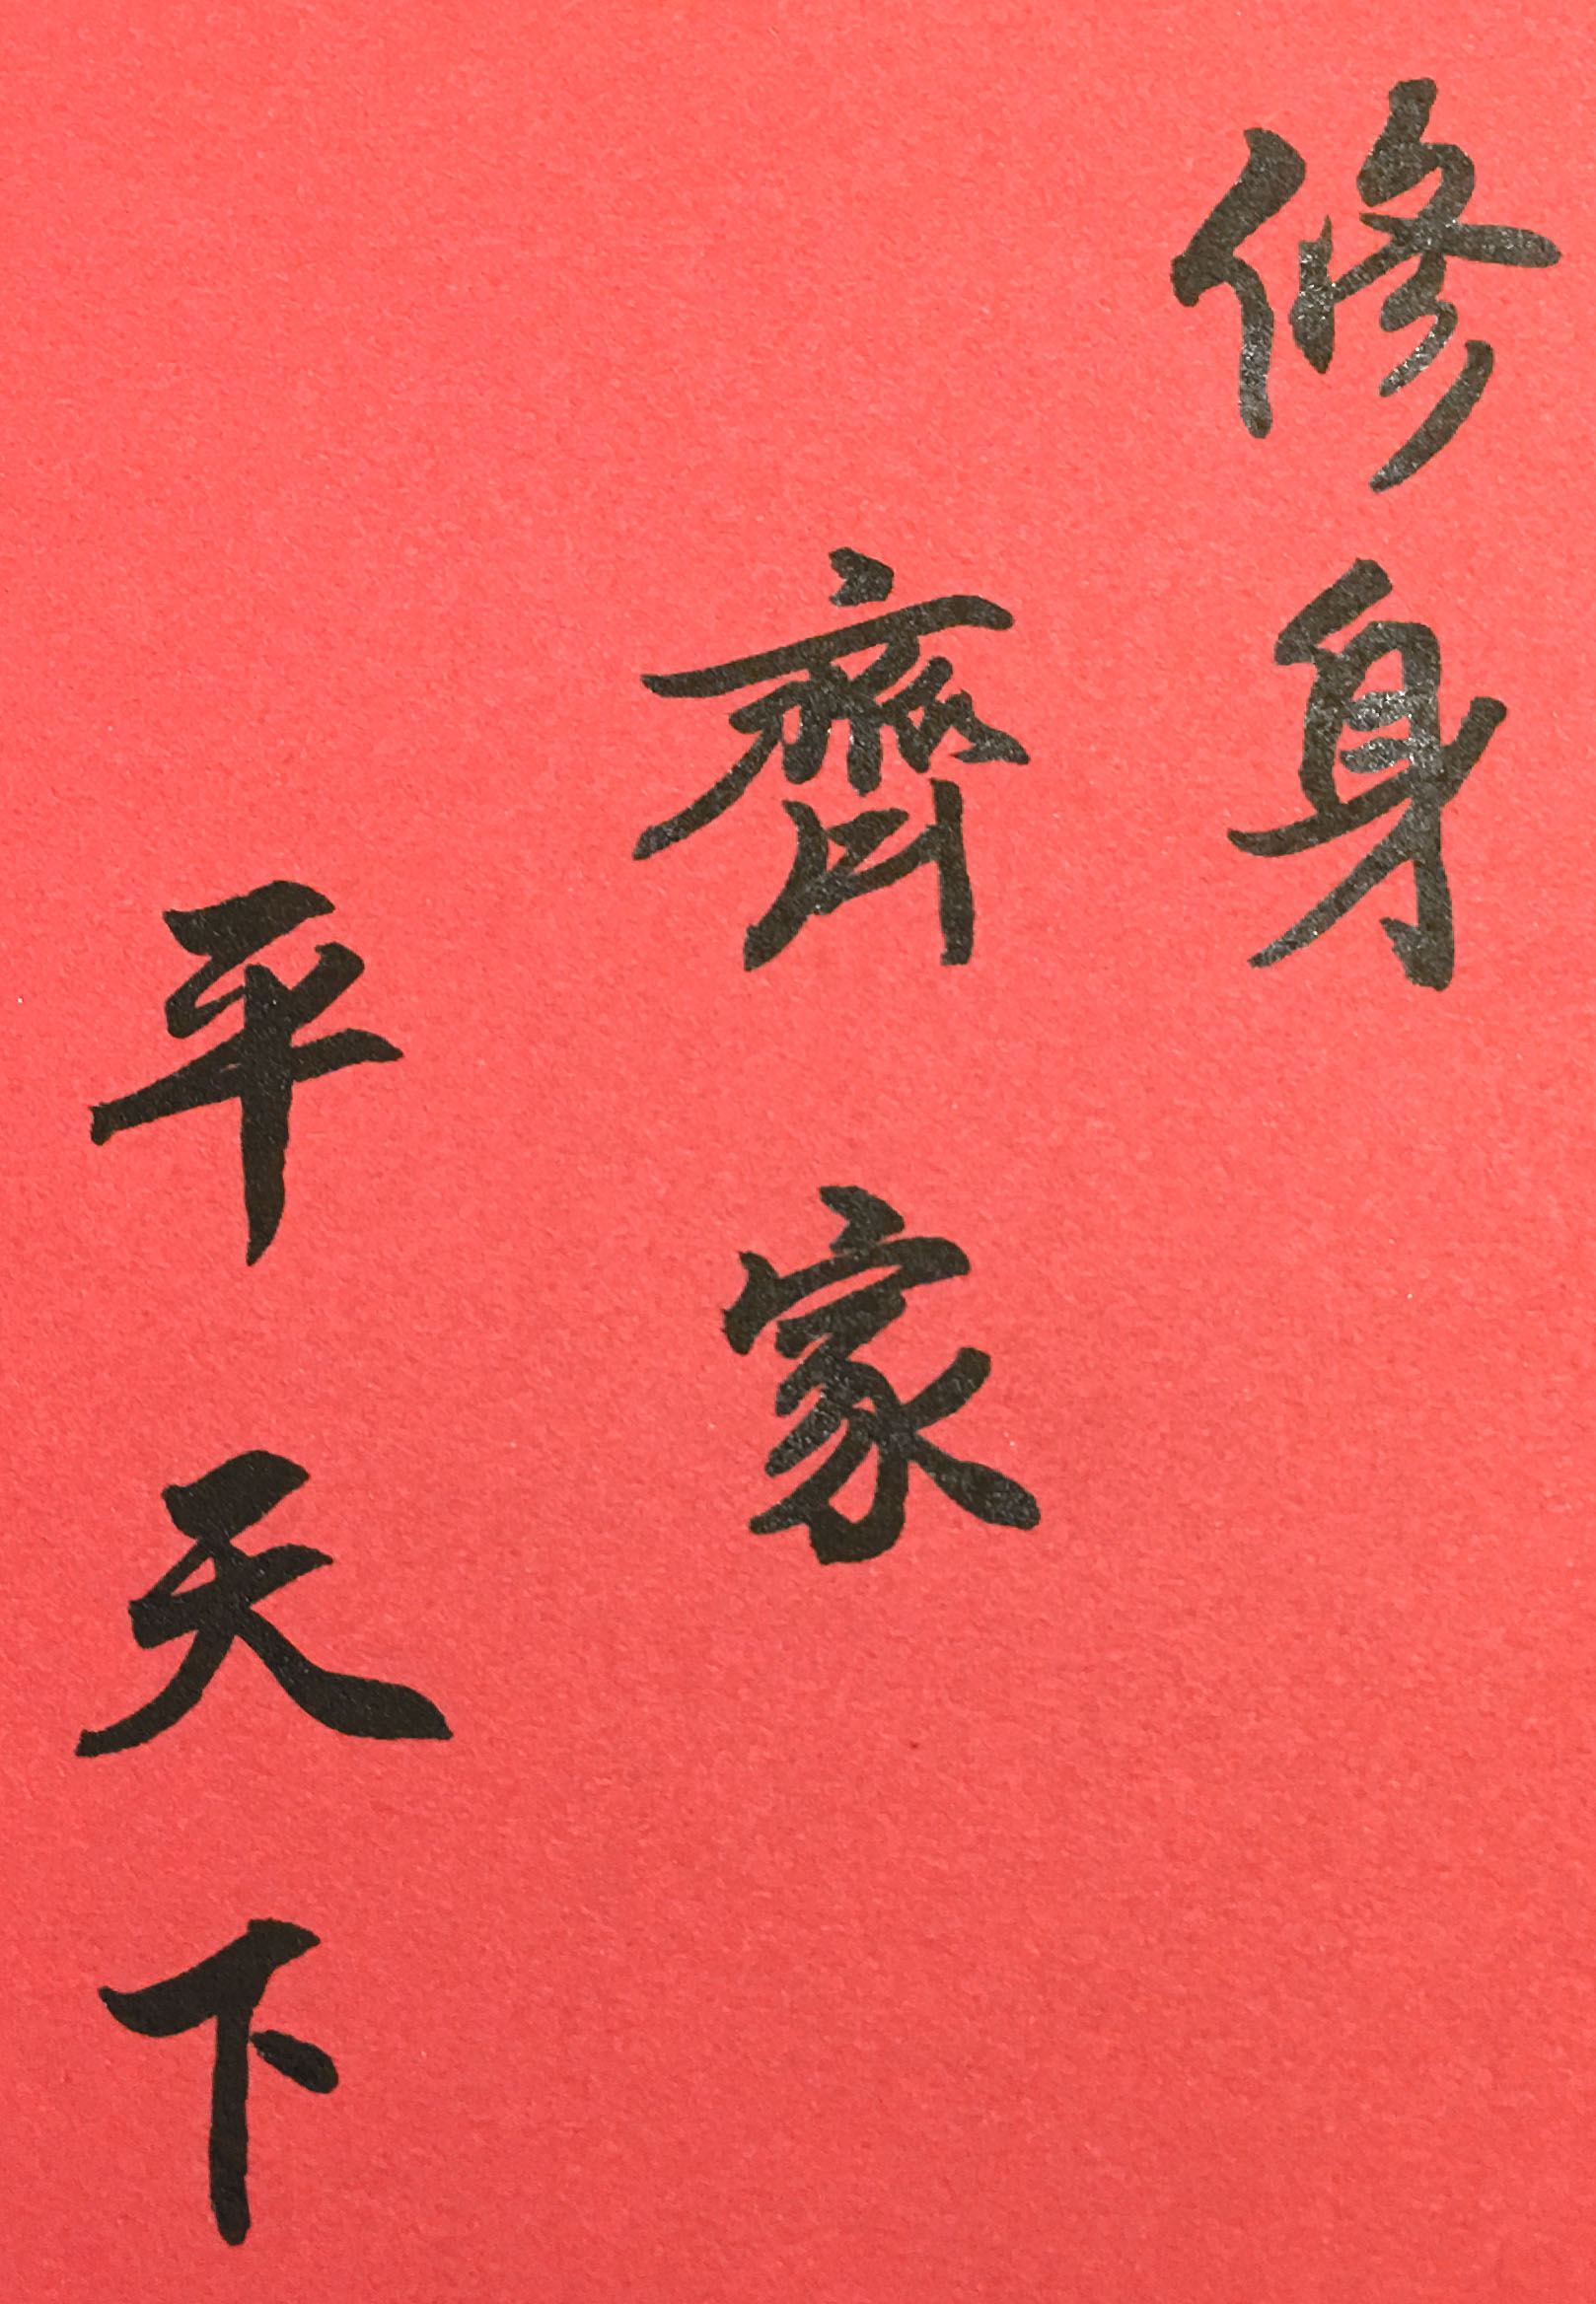 修身
齊家
平天下